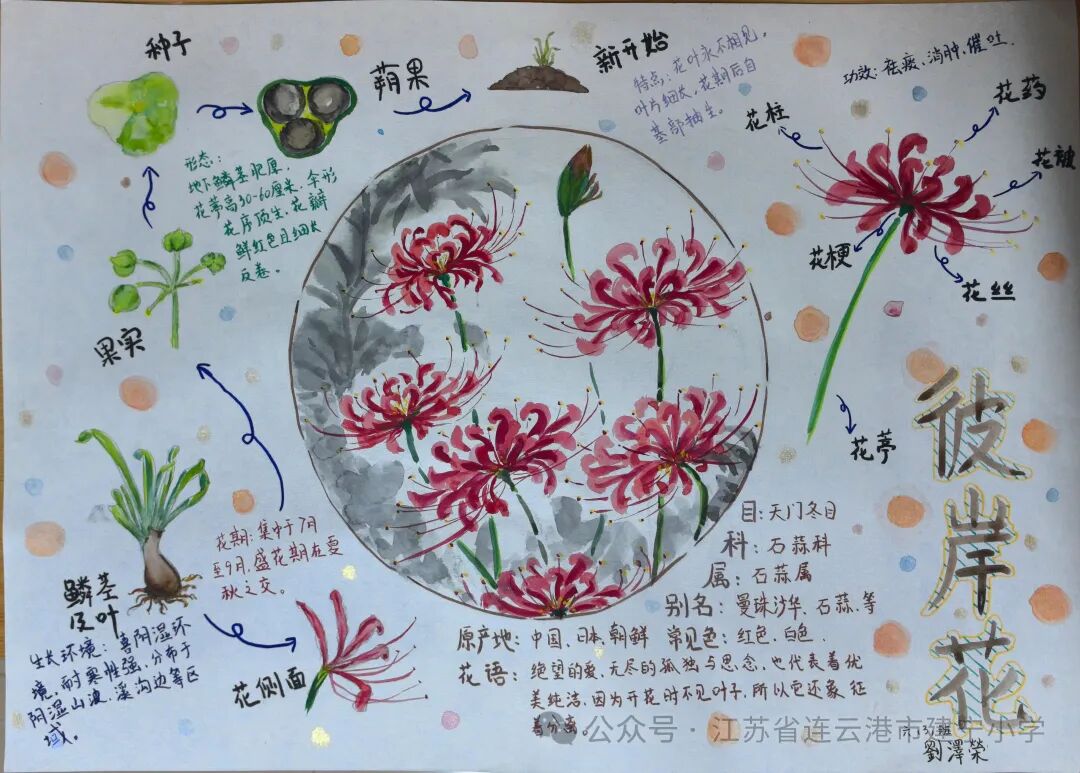 种子
蒴果
新开始
特点：花叶永不相见，
叶片细长，花期后自
基部抽生。
功效：祛痰、消肿、催吐.
花柱
花药
花被
花梗
花丝
花葶
形态：
地下鳞茎肥厚，
花葶高30-60厘米，伞形
花序顶生，花瓣
鲜红色且细长
反卷。
果实
花期：集中于7月
至9月，盛花期在夏
秋之交。
鳞茎
及叶
生长环境：喜阴湿环
境，耐寒性强，分布于
阴湿山坡、溪沟边等区
域。
花侧面
目：天门冬目
科：石蒜科
属：石蒜属
别名：曼珠沙华、石蒜.等
原产地：中国、日本、朝鲜 常见色：红色、白色.
花语：绝望的爱、无尽的孤独与思念，也代表着优
美纯洁，因为开花时不见叶子，所以它还象征
着分离。
彼岸花
六.(3)班
劉澤榮
公众号·江苏省连云港市建宁小学